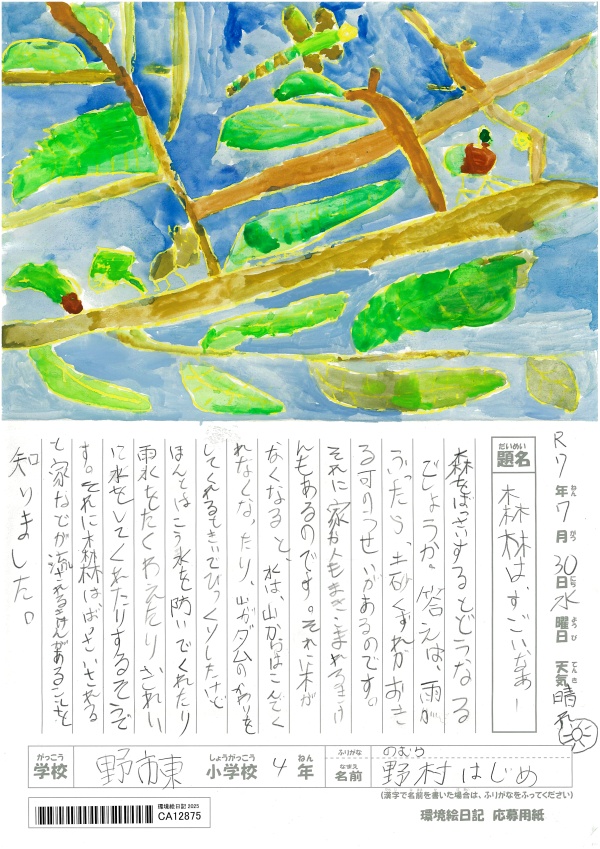 R7年7月30日水曜日 天気晴れ
ねん がつ にち ようび てんき
だいめい
題名
森林は、すごいなあー
森をばっさいするとどうなる
でしょうか。答えは、雨が
ふったら、土砂くずれがおき
る可のうせいがあるのです。
それに家か人もまきこまれるきけ
んもあるのです。それに木が
なくなると、水は、山からはこんでく
れなくなったり、山がダムのかわりを
してくれるてきいてびっくりしたけど
ほんとはこう水を防いでくれたり
雨水をたくわえたりきれい
に水をしてくれたりするそうで
す。それに森林はばっさいされる
と家などが流されるきけんがあることを
知りました。
がっこう
学校
野市東
しょうがっこう
小学校
4
ねん
年
ふりがな
のむら
なまえ
名前
野村はじめ
(漢字で名前を書いた場合は、ふりがなをふってください)
環境絵日記2025
CA12875
環境絵日記 応募用紙